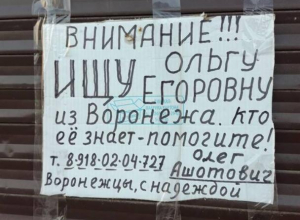 ВНИМАНИЕ!!!
ИЩУ ОЛЬГУ
ЕГОРОВНУ
из Воронежа. кто
её знает-помогите!
т. 8-918-02-04-727 Олег
Ашотович
Воронежцы, с надеждой